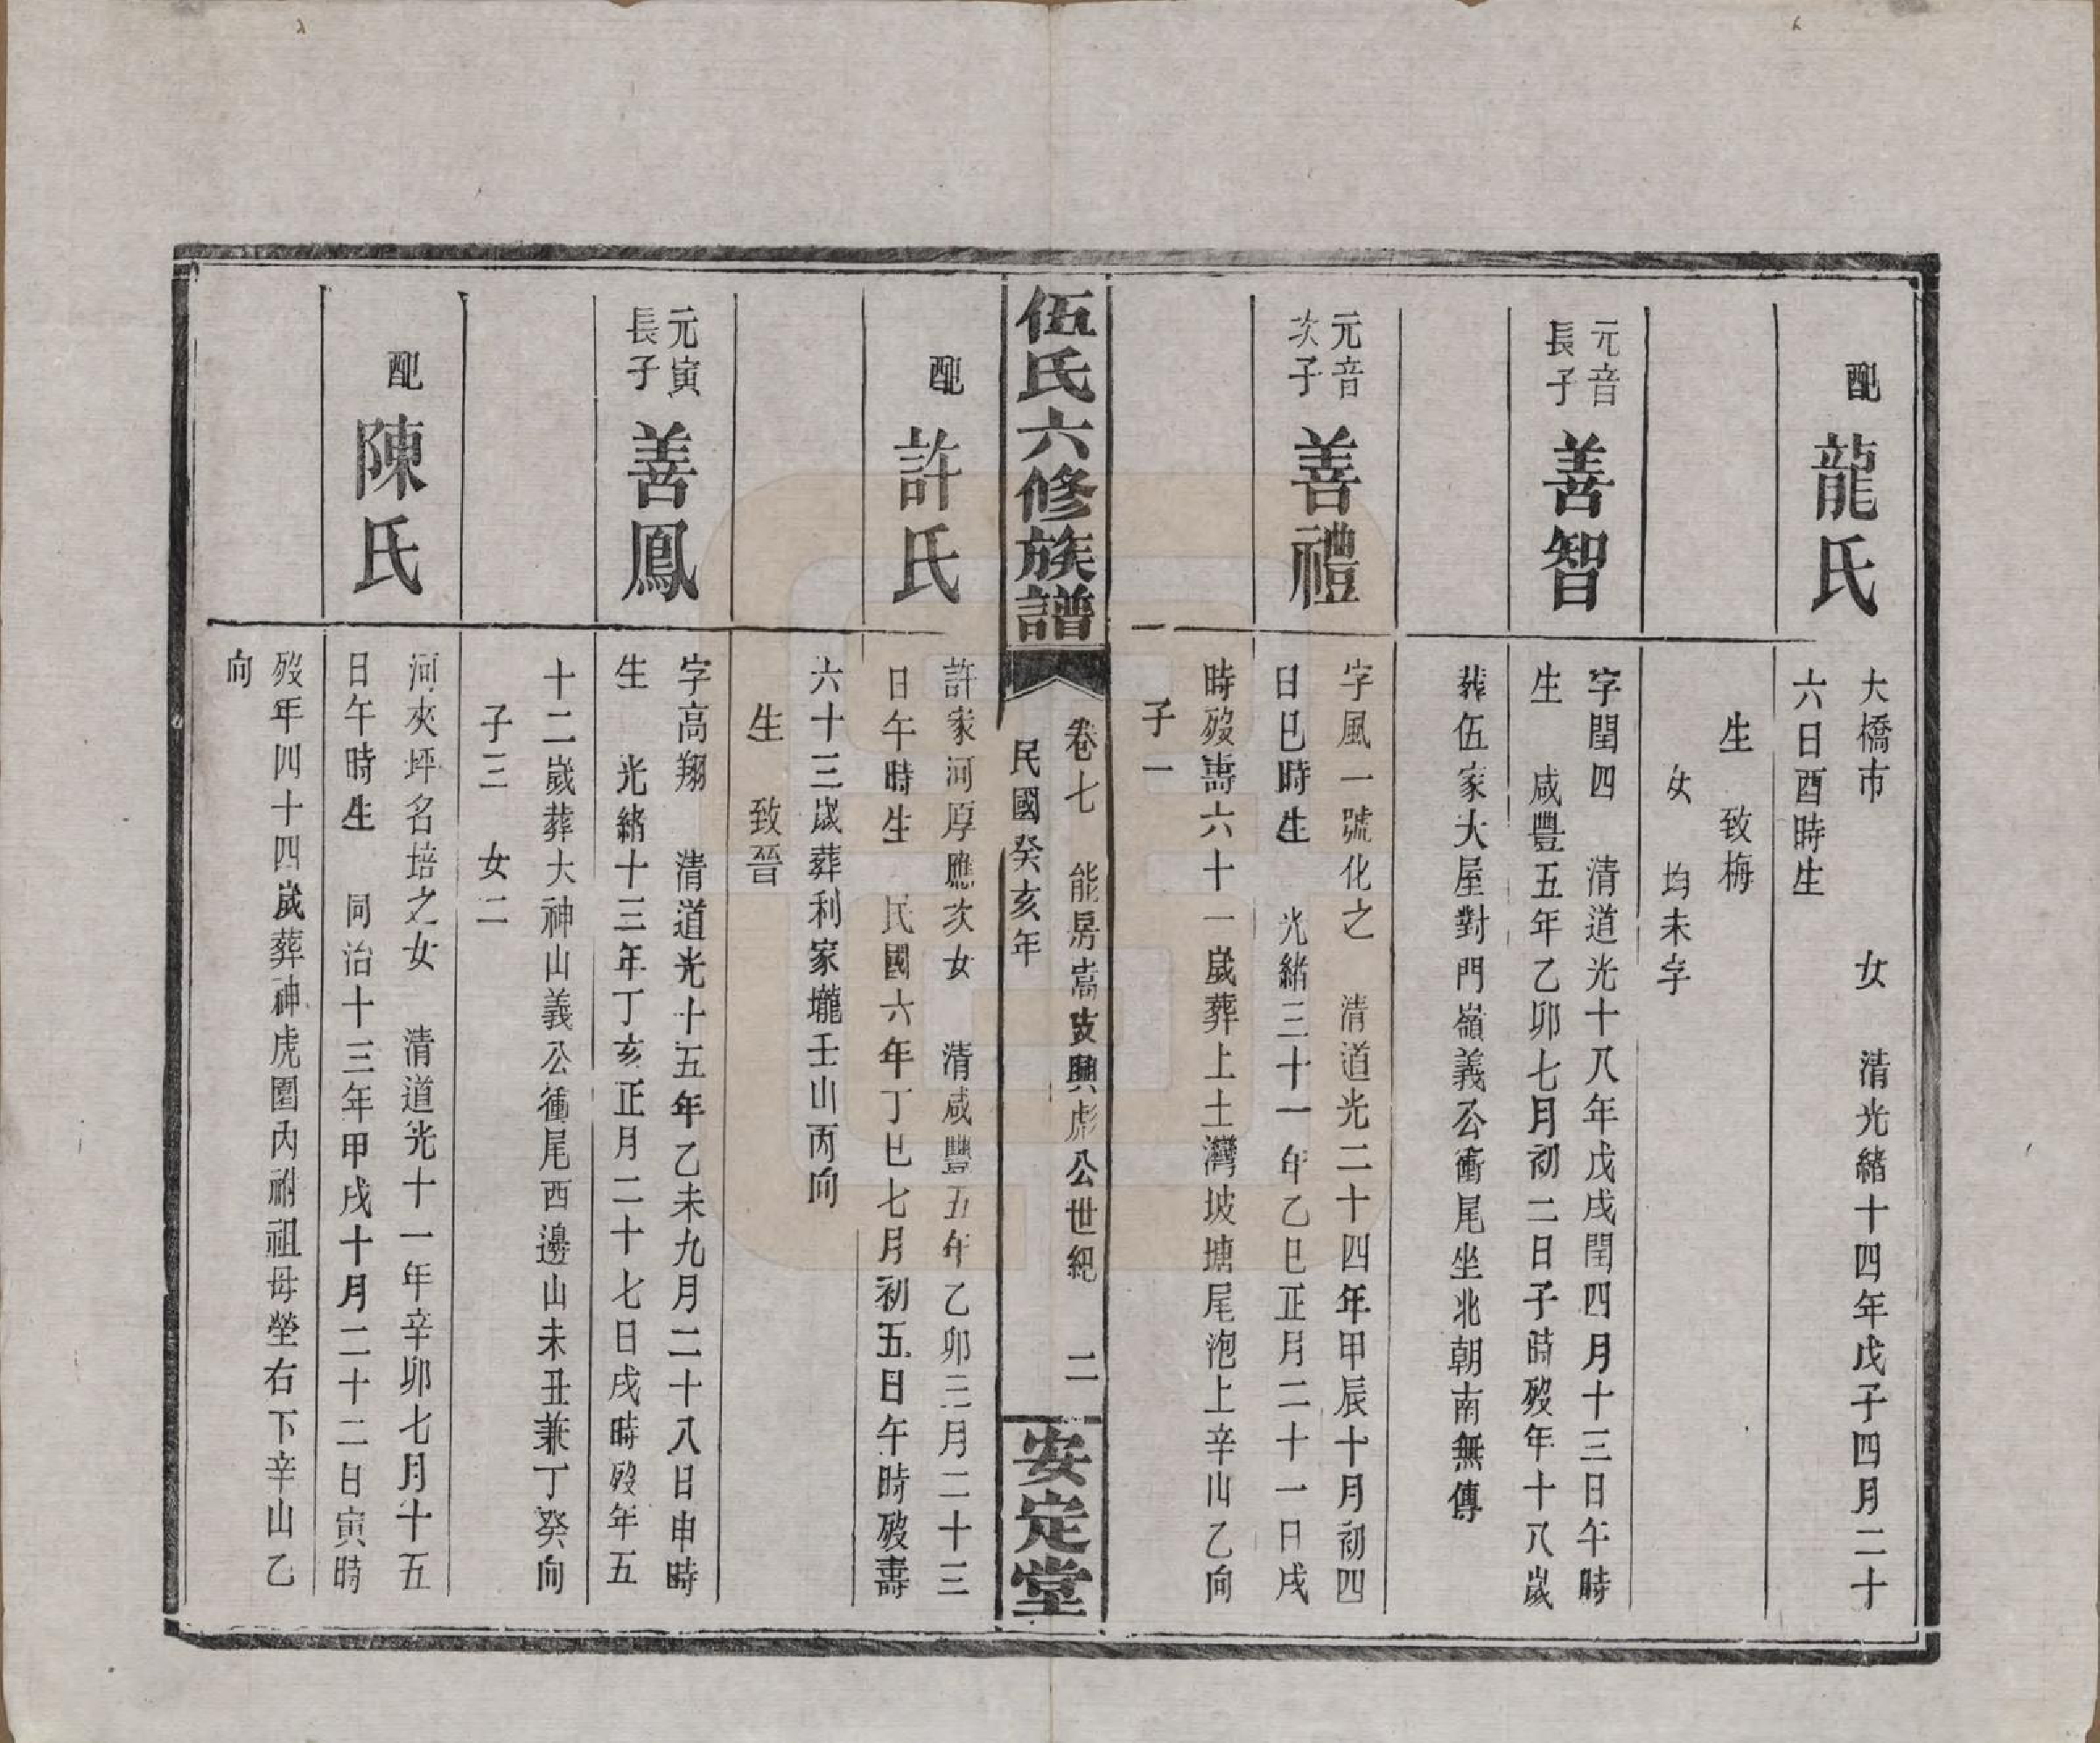 配 龍氏
大橋市 女 清光緒十四年戊子四月二十
六日酉時生
生 致梅
女 均未字
元音
長子
善智
字閏四 清道光十八年戊戌閏四月十三日午時
生 咸豐五年乙卯七月初二日子時歿年十八歲
葬伍家大屋對門嶺義公衝尾坐北朝南無傳
元音
次子
善禮
字風一號化之 清道光二十四年甲辰十月初四
日巳時生 光緒三十一年乙巳正月二十一日戌
時歿壽六十一歲葬上土灣坡塘尾池上辛山乙向
子一
伍氏六修族譜
卷七 能房嵩支興彪公世紀 二
民國癸亥年
安定堂
配 許氏
許家河厚應次女 清咸豐五年乙卯三月二十三
日午時生 民國六年丁巳七月初五日午時歿壽
六十三歲葬利家壠壬山丙向
生 致晉
元寅
長子
善鳳
字高翔 清道光十五年乙未九月二十八日申時
生 光緒十三年丁亥正月二十七日戌時歿年五
十二歲葬大神山義公衝尾西邊山未丑兼丁癸向
子三 女二
配 陳氏
河夾坪名培之女 清道光十一年辛卯七月十五
日午時生 同治十三年甲戌十月二十二日寅時
歿年四十四歲葬神虎園內祔祖母塋右下辛山乙
向